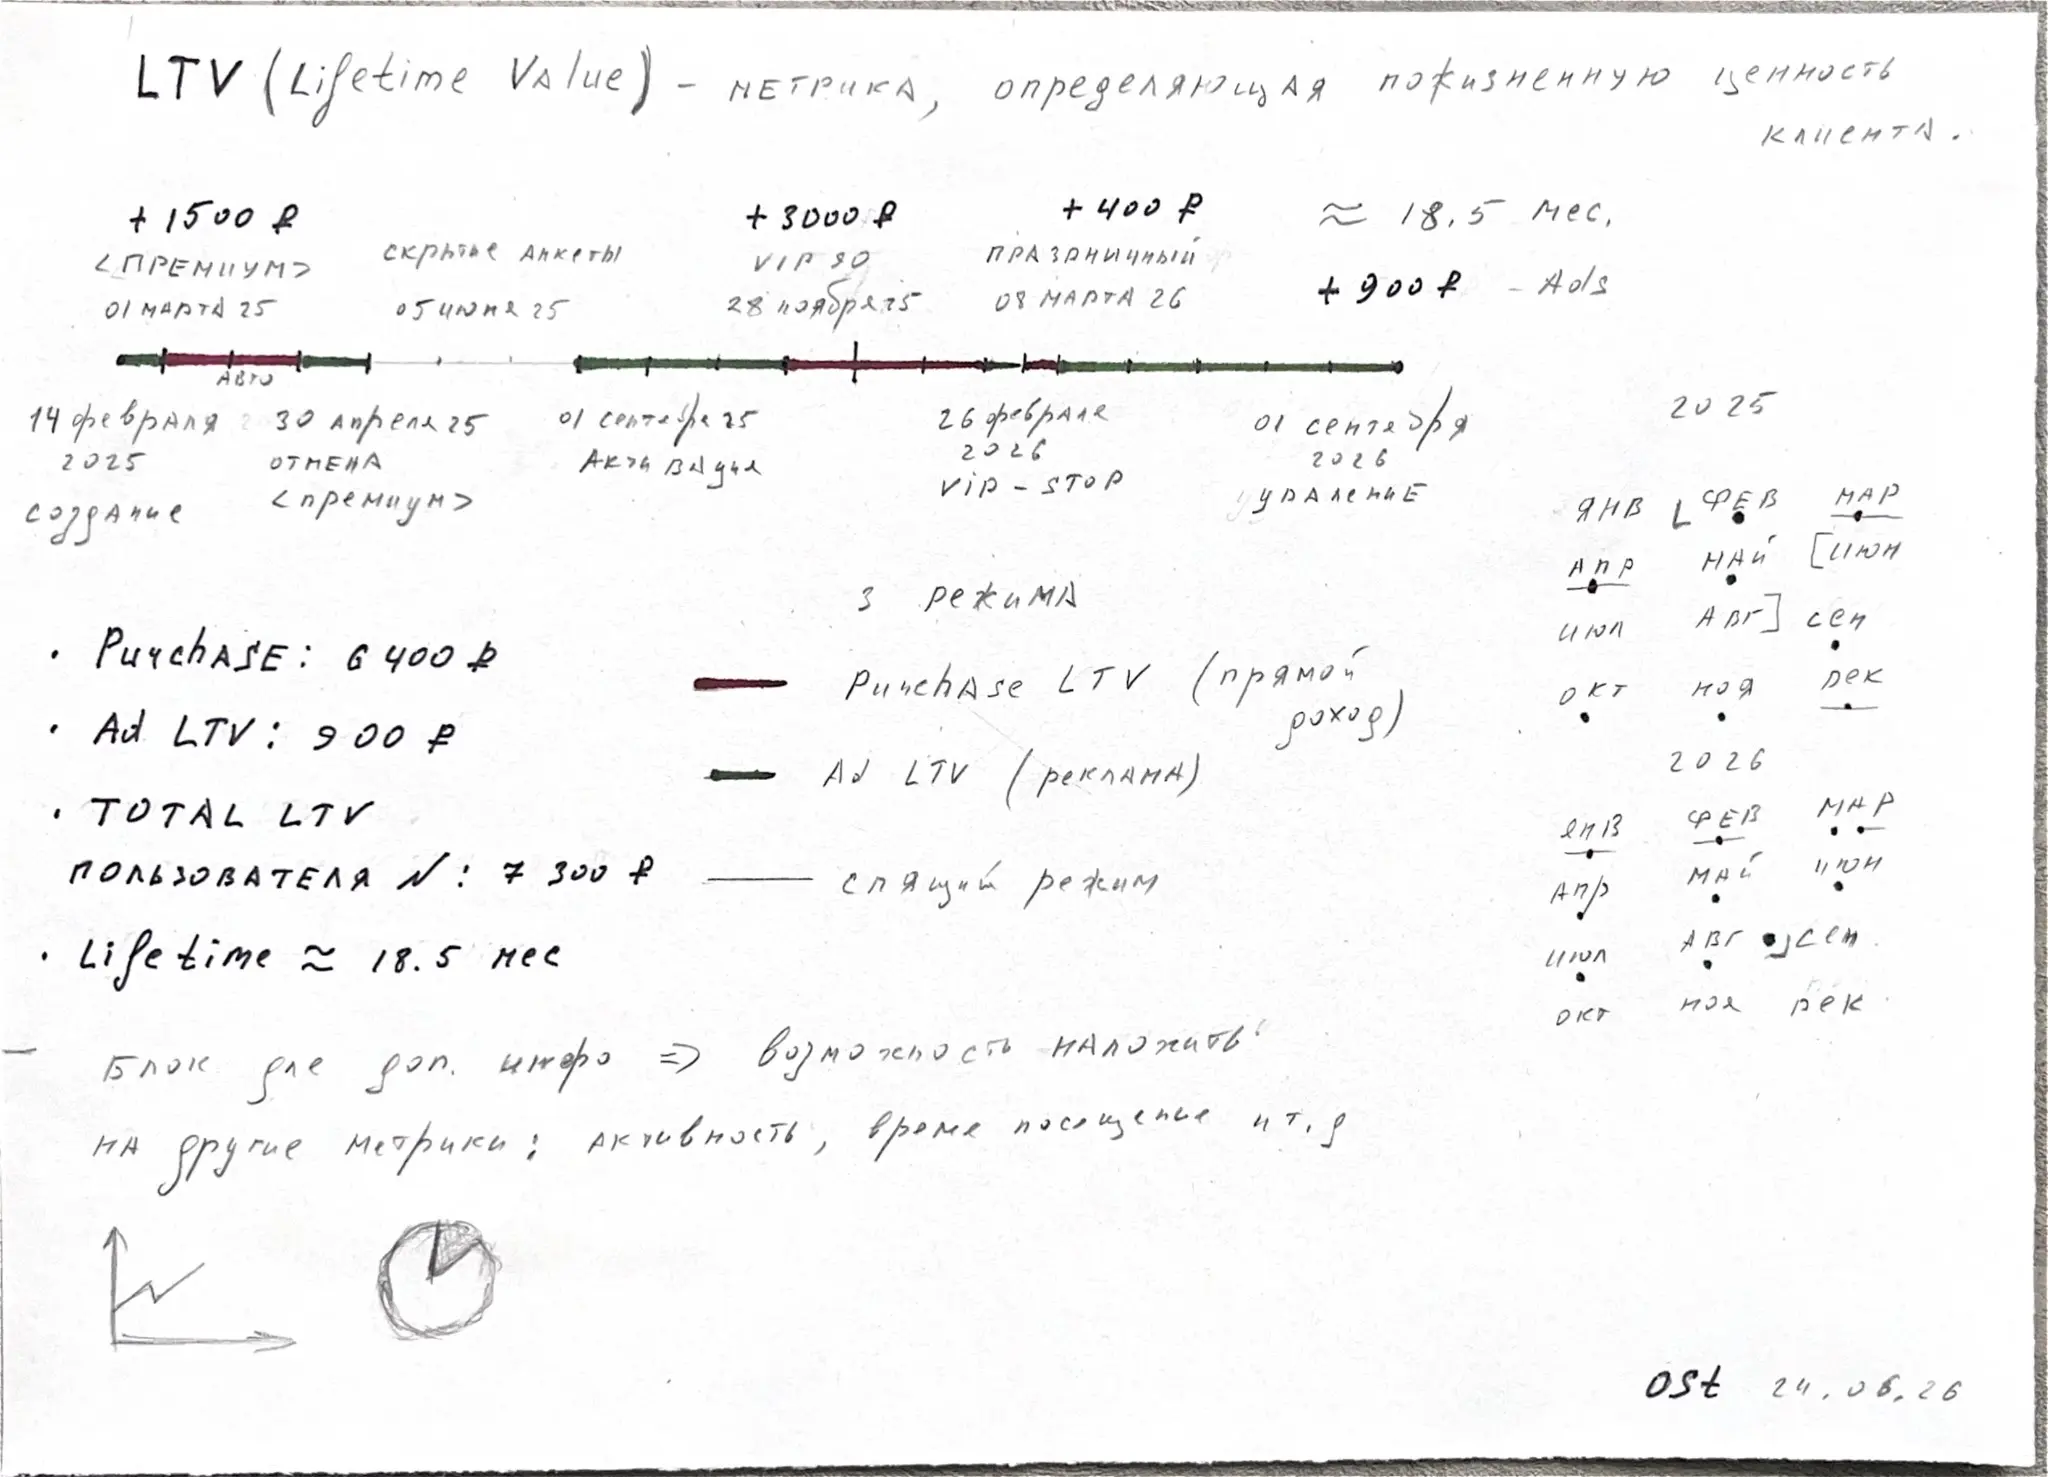 LTV (Lifetime Value) - метрика, определяющая пожизненную ценность
клиента.
+ 1500 ₽
<ПРЕМИУМ>
01 МАРТА 25
скрытие анкеты
05 июня 25
+ 3000 ₽
VIP 90
28 ноября 25
+ 400 ₽
ПРАЗДНИЧНЫЙ
08 МАРТА 26
≈ 18.5 мес.
+ 900 ₽ - Ads
АВТО
14 февраля
2025
создание
30 апреля 25
ОТМЕНА
<премиум>
01 сентября 25
Активация
26 февраля
2026
VIP - STOP
01 сентября
2026
удаление
2025
ЯНВ [ ФЕВ МАР
АПР МАЙ [ИЮН
ИЮЛ АВГ] сен
окт ноя дек
2026
янв ФЕВ МАР
Апр МАЙ июн
июл АВГ ] сен
окт ноя дек
3 режима
Purchase LTV (прямой
доход)
Ad LTV (реклама)
спящий режим
• Purchase: 6 400 ₽
• Ad LTV: 900 ₽
• TOTAL LTV
ПОЛЬЗОВАТЕЛЯ N: 7 300 ₽
• Lifetime ≈ 18.5 мес
- Блок для доп. инфо => возможность наложить
на другие метрики: активность, время посещение и т.д
OSt 24.06.26